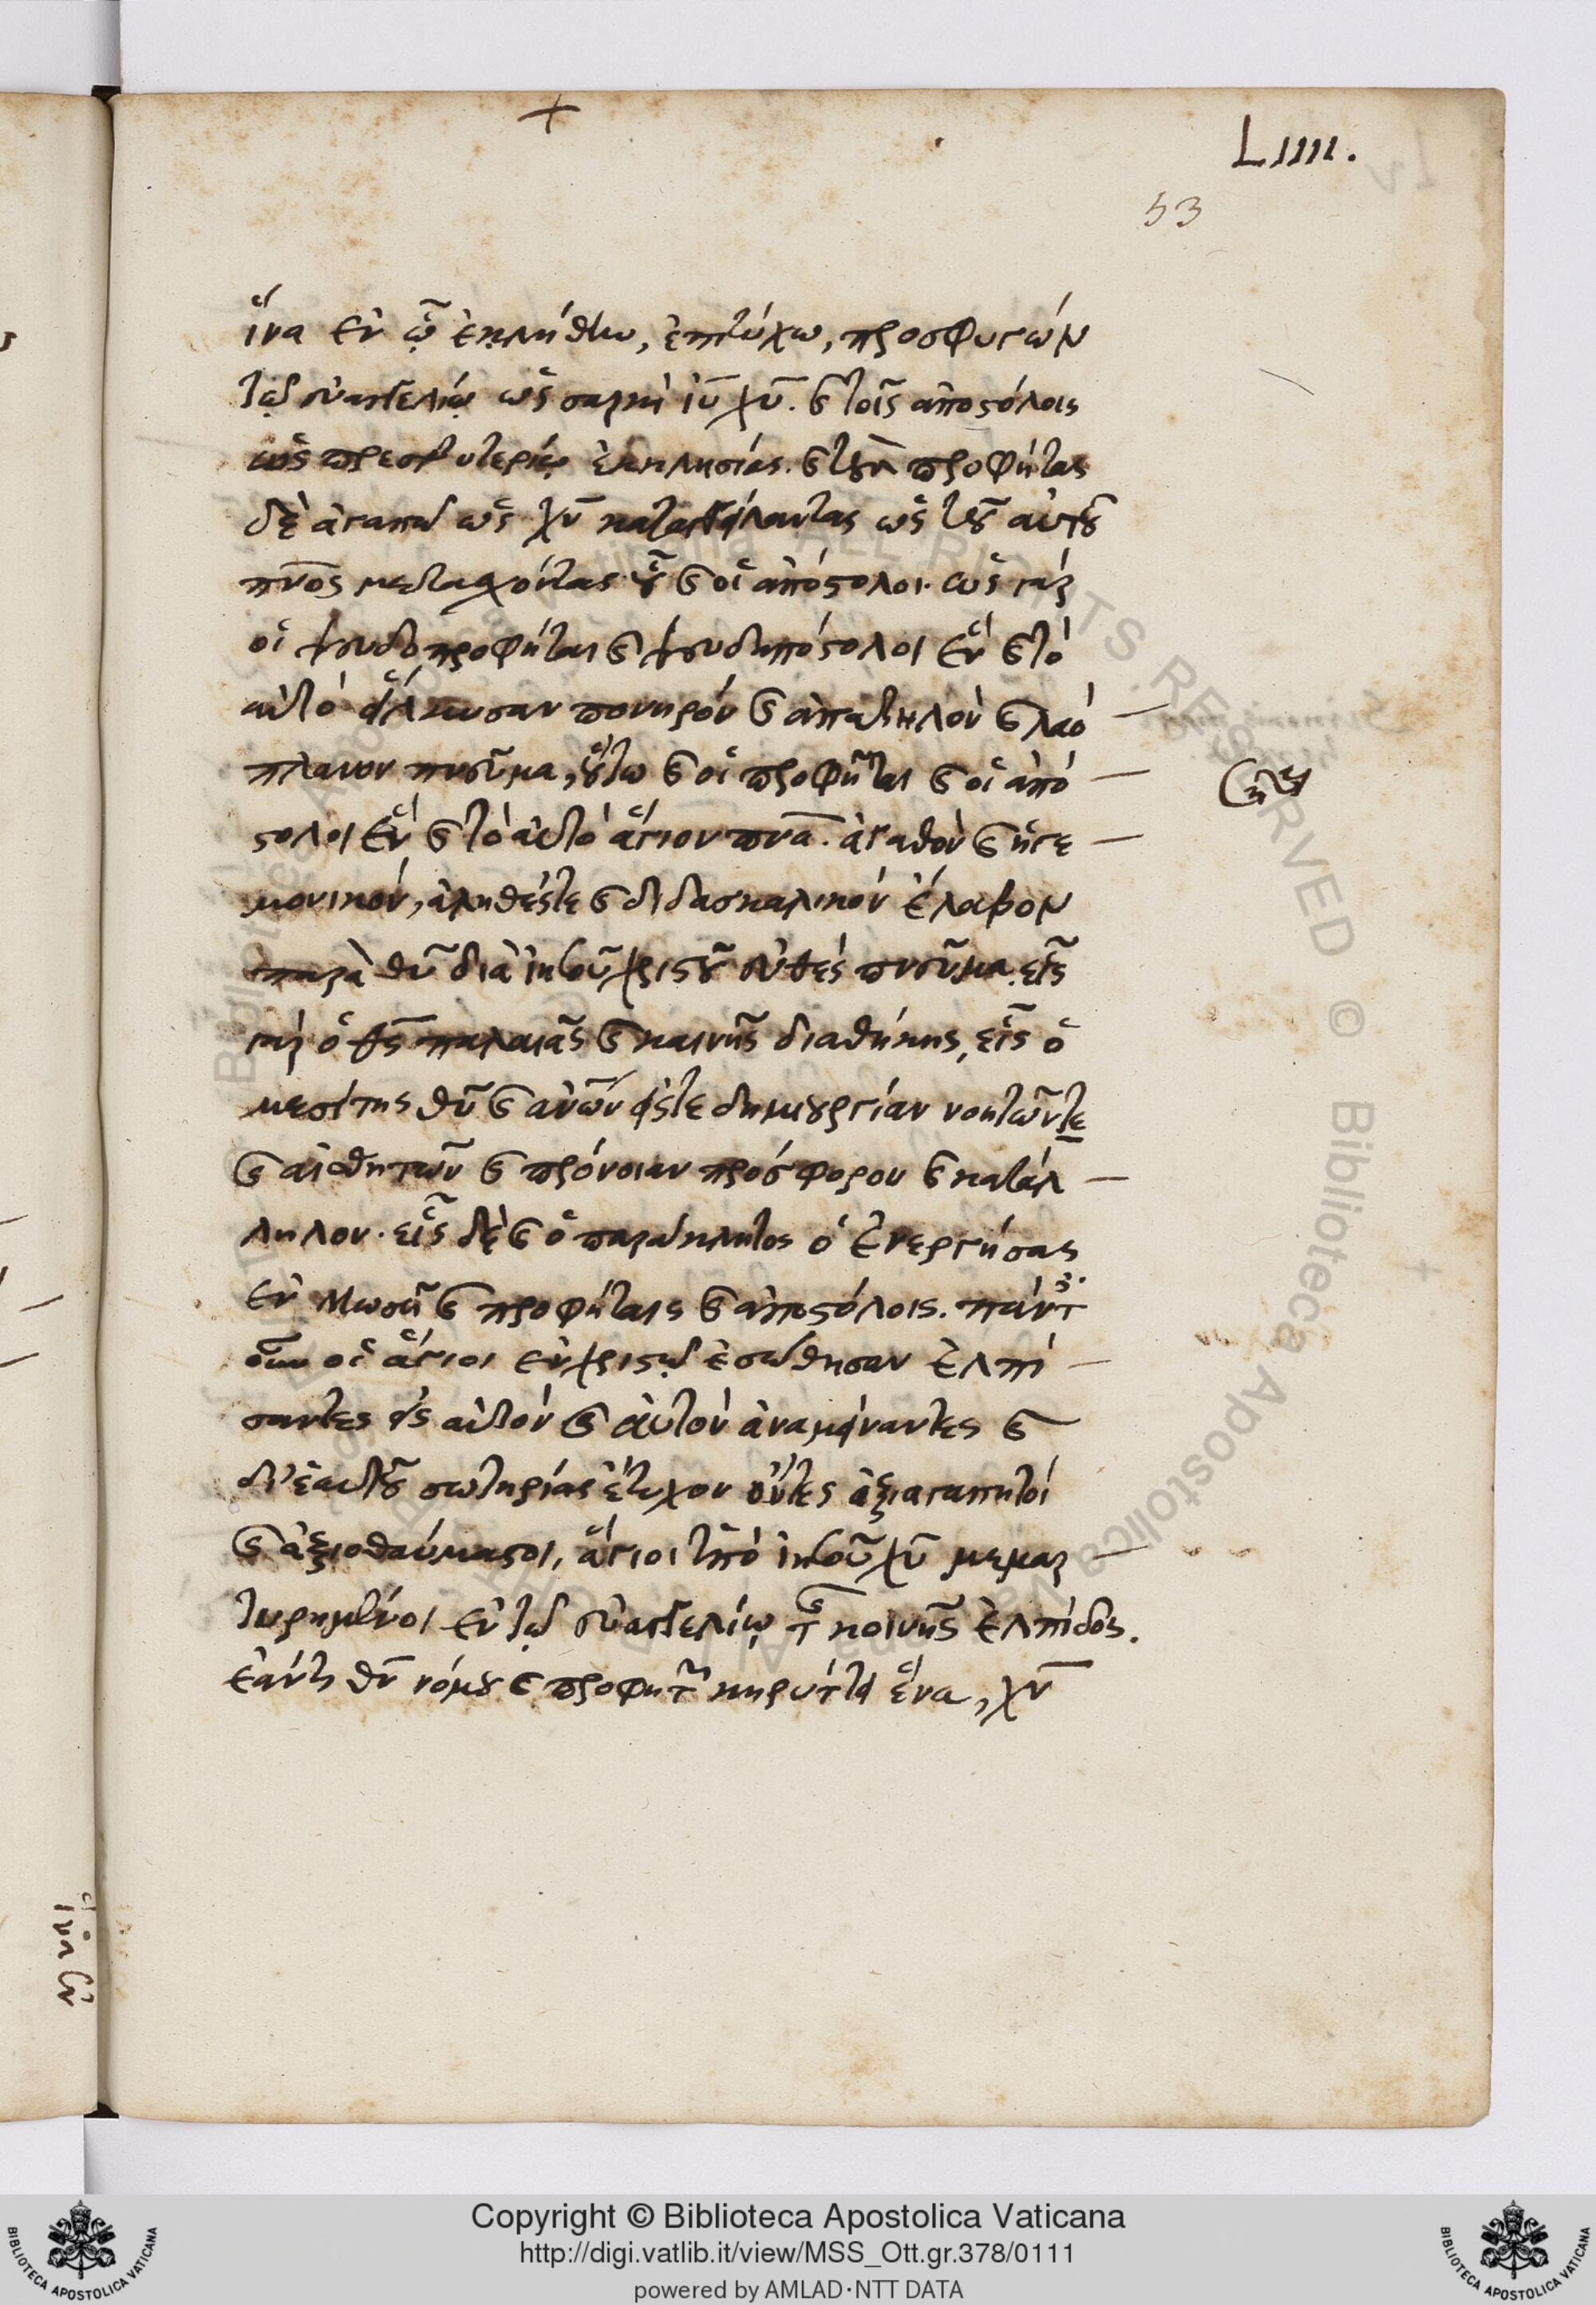 LIIII.
53
ἵνα ἐν ᾧ ἐκλήθην, ἐπιτύχω, προσφυγὼν
τῷ εὐαγγελίῳ ὡς σαρκὶ ἰῡ χῡ. καὶ τοῖς ἀποστόλοις
ὡς πρεσβυτερίῳ ἐκκλησίας. καὶ τοὺς προφήτας
δὲ ἀγαπῶ ὡς χν̄ καταγγείλαντας ὡς τοῦ αὐτοῦ
πνο̄ς μετασχόντας οὗ καὶ οἱ ἀπόστολοι. ὡς γὰρ
οἱ ψευδοπροφῆται καὶ ψευδαπόστολοι ἓν καὶ τὸ
αὐτὸ εἵλκυσαν πονηρὸν καὶ ἀπατηλὸν καὶ λαο
πλάνον πνεῦμα, οὕτω καὶ οἱ προφῆται καὶ οἱ ἀπό
στολοι ἓν καὶ τὸ αὐτὸ ἅγιον πνᾱ. ἀγαθὸν καὶ ἡγε
μονικόν, ἀληθές τε καὶ διδασκαλικὸν ἔλαβον
παρὰ θῡ διὰ ἰησοῦ χριστοῦ εὐθὲς πνεῦμα. εἷς
γὰρ ὁ θς̄ παλαιᾶς καὶ καινῆς διαθήκης, εἷς ὁ
μεσίτης θῡ καὶ ἀνω̄ν εἴς τε δημιουργίαν νοητῶν τε
καὶ αἰσθητῶν καὶ πρόνοιαν πρόσφορον καὶ κατάλ
ληλον. εἷς δὲ καὶ ὁ παράκλητος ὁ ἐνεργήσας
ἐν Μωσῇ καὶ προφήταις καὶ ἀποστόλοις. πάντες
οὖν οἱ ἅγιοι ἐν χριστῷ ἐσώθησαν ἐλπί
σαντες εἰς αὐτὸν καὶ αὐτὸν ἀναμείναντες καὶ
δι' ἑαυτοῦ σωτηρίας ἔτυχον ὄντες ἀξιαγαπητοὶ
καὶ ἀξιοθαύμαστοι, ἅγιοι ὑπὸ ἰησοῦ χῡ μεμαρ
τυρημένοι ἐν τῷ εὐαγγελίῳ τῆς κοινῆς ἐλπίδος.
ἐάν τις θν̄ νόμου καὶ προφητῶν κηρύττει ἕνα, χν̄
ἵνα ἐν
Copyright © Biblioteca Apostolica Vaticana
http://digi.vatlib.it/view/MSS_Ott.gr.378/0111
powered by AMLAD·NTT DATA